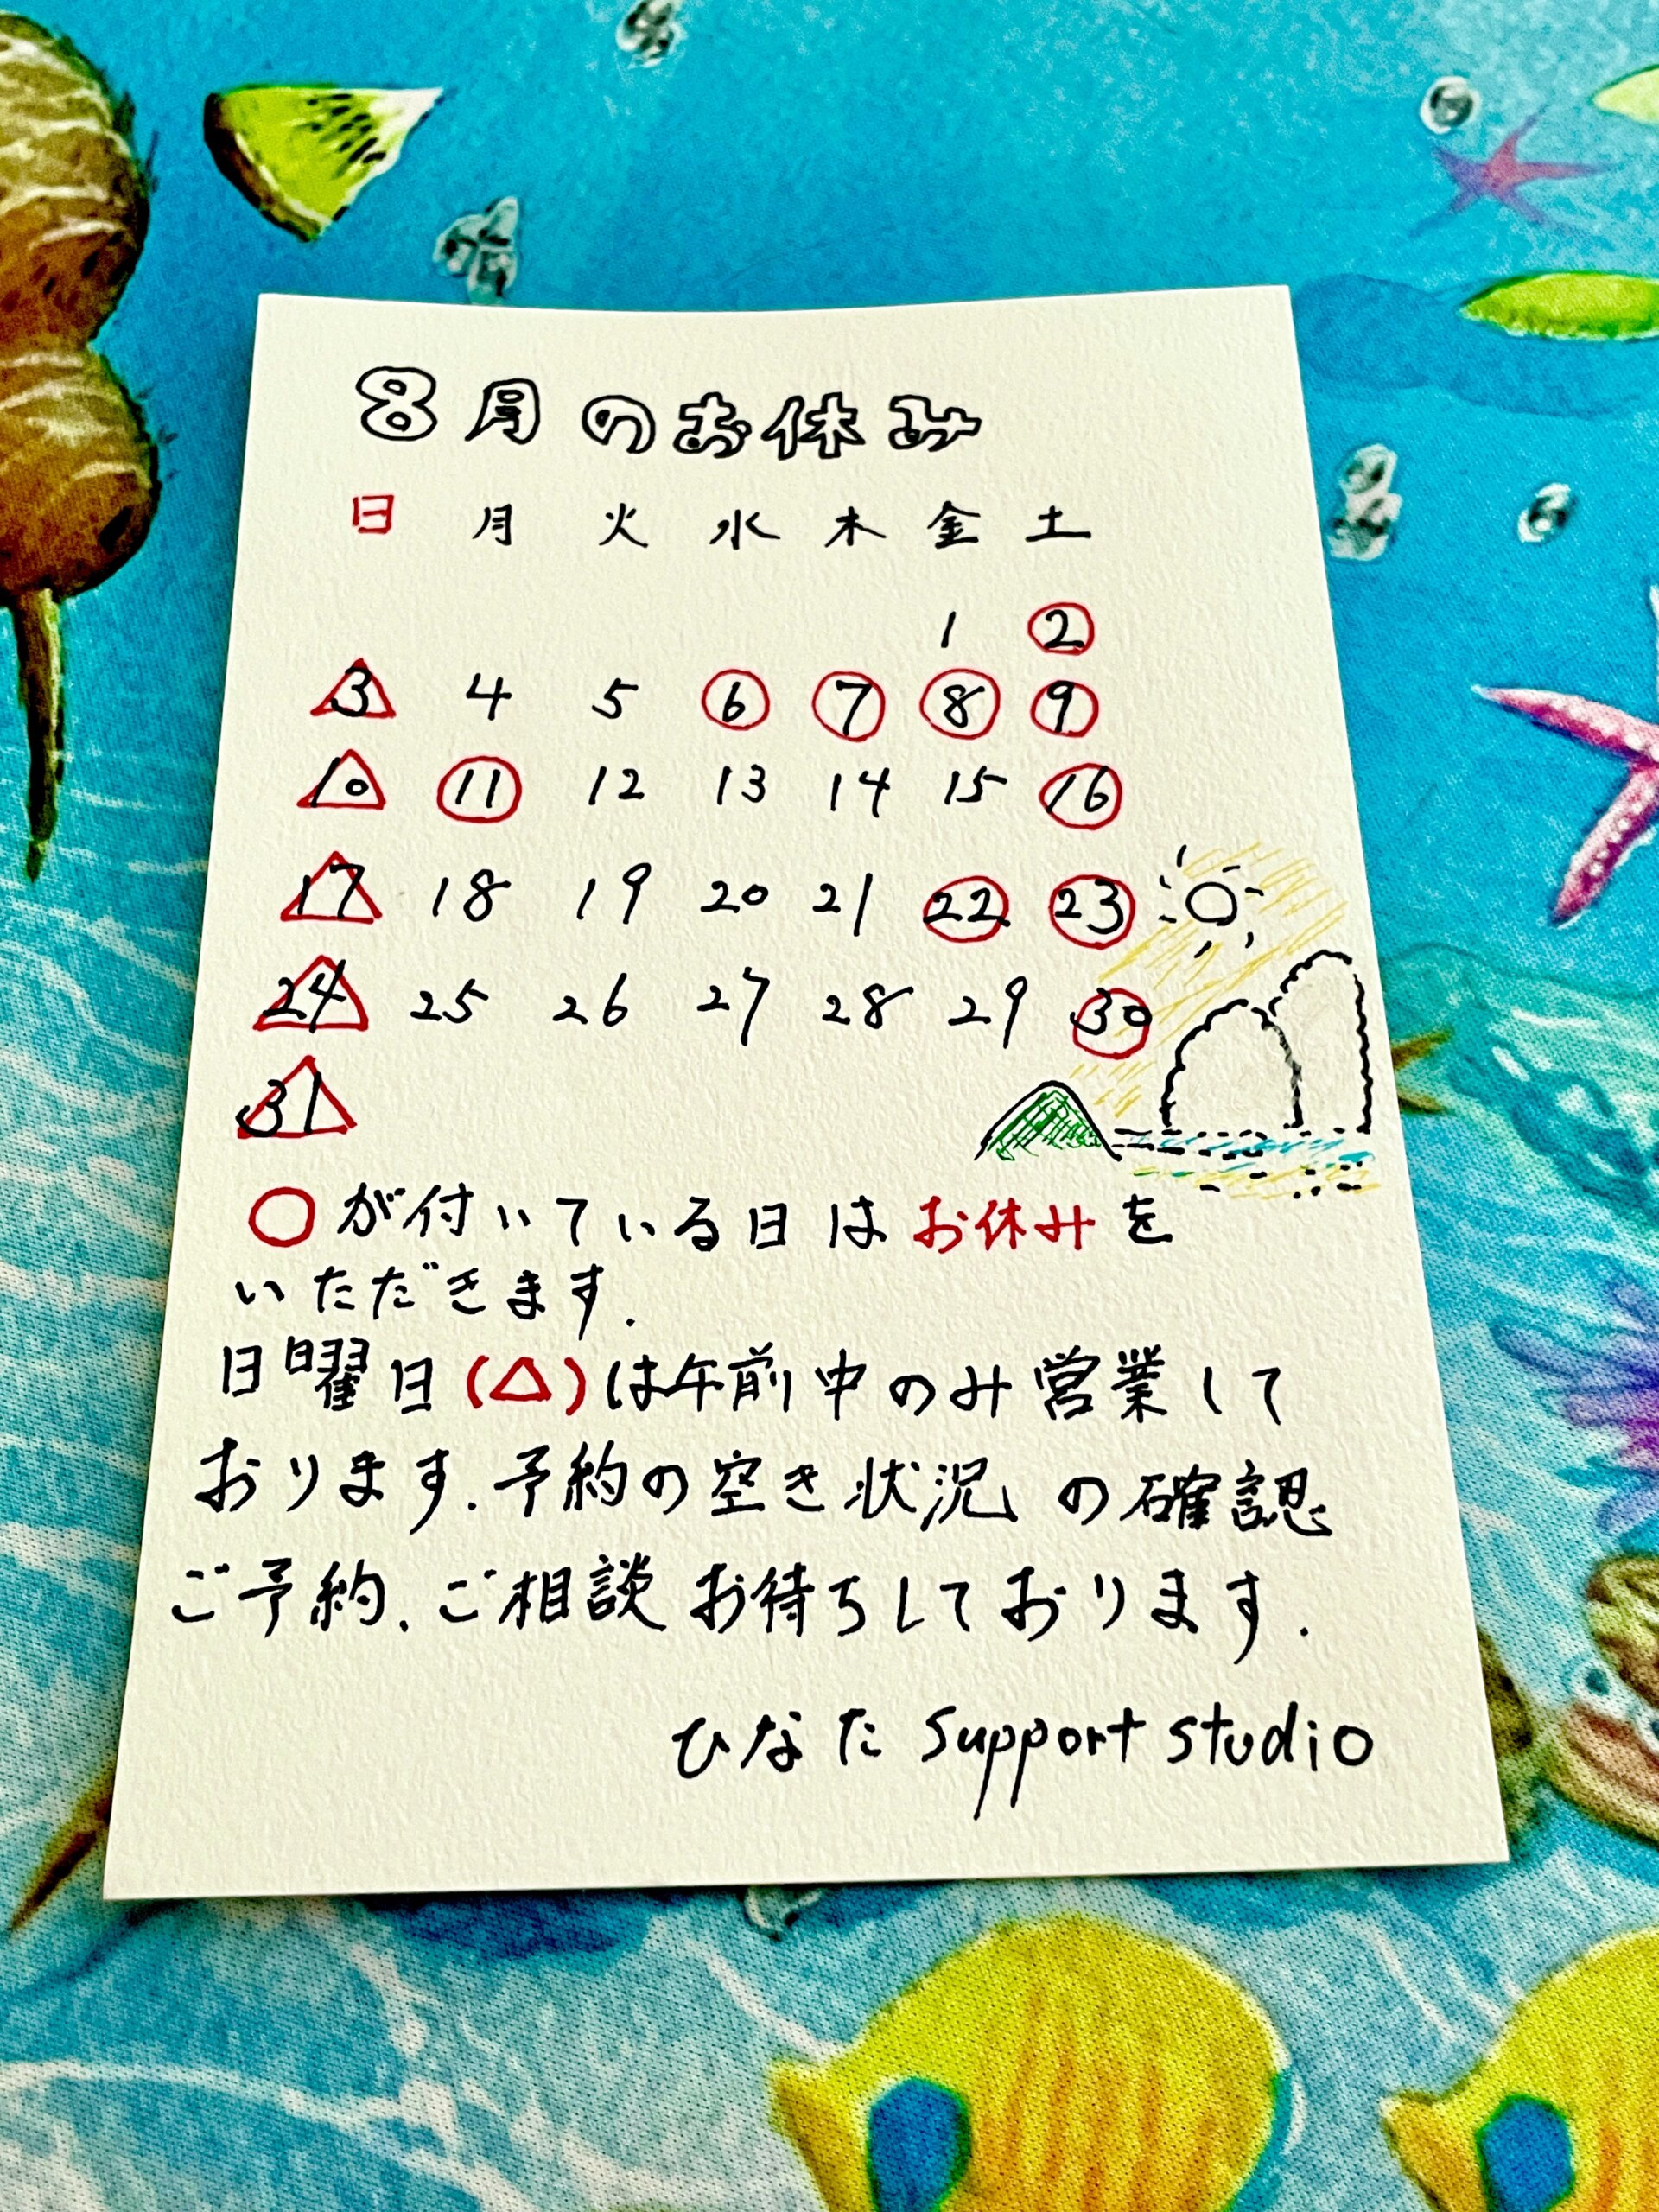 8月のお休み
日 月 火 水 木 金 土
1 2
3 4 5 6 7 8 9
10 11 12 13 14 15 16
17 18 19 20 21 22 23
24 25 26 27 28 29 30
31
○が付いている日はお休みを
いただきます.
日曜日(△)は午前中のみ営業して
おります.予約の空き状況の確認
ご予約、ご相談お待ちしております.
ひなた support studio